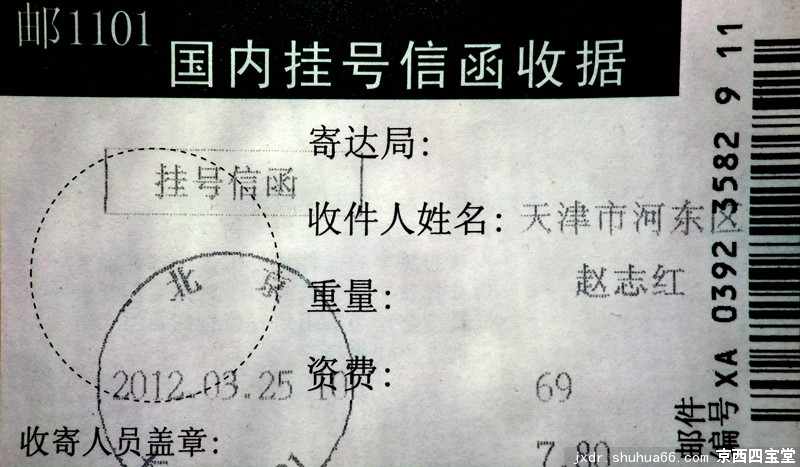 邮1101
国内挂号信函收据
挂号信函
寄达局:
收件人姓名: 天津市河东区
赵志红
北京
重量:
2012.03.25 10
资费: 69
收寄人员盖章:
7.80
邮件
编号 XA 0392 3582 9 11
jxdr.shuhua66.com 京西四宝堂